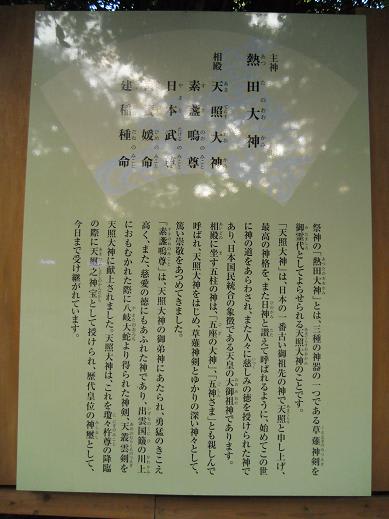 主神
熱田大神
相殿
天照大神
素盞嗚尊
日本武尊
媛命
建稲種命
祭神の「熱田大神」とは、三種の神器の一つである草薙神剣を
御霊代としてよらせられる天照大神のことです。
「天照大神」は、日本の一番古い御祖先の神で天照と申し上げ、
最高の神格を、また日神と讃えて呼ばれるように、始めてこの世
に神の道をあらわされ、また人々に慈しみの徳を授けられた神で
あり、日本国民統合の象徴である天皇の大御祖神であります。
相殿に坐す五柱の神は、「五座の大神」、「五神さま」とも親しんで
呼ばれ、天照大神をはじめ、草薙神剣とゆかりの深い神々として、
篤い崇敬をあつめてきました。
「素盞嗚尊」は、天照大神の御弟神にあたられ、勇猛のきこえ
高く、また、慈愛の徳にもあふれた神であり、出雲国簸の川上
におもむかれた際に八岐大蛇より得られた神剣、天叢雲剣を
天照大神に献上されました。天照大神は、これを瓊々杵尊の降臨
の際に天璽之神宝として授けられ、歴代皇位の神璽として、
今日まで受け継がれています。